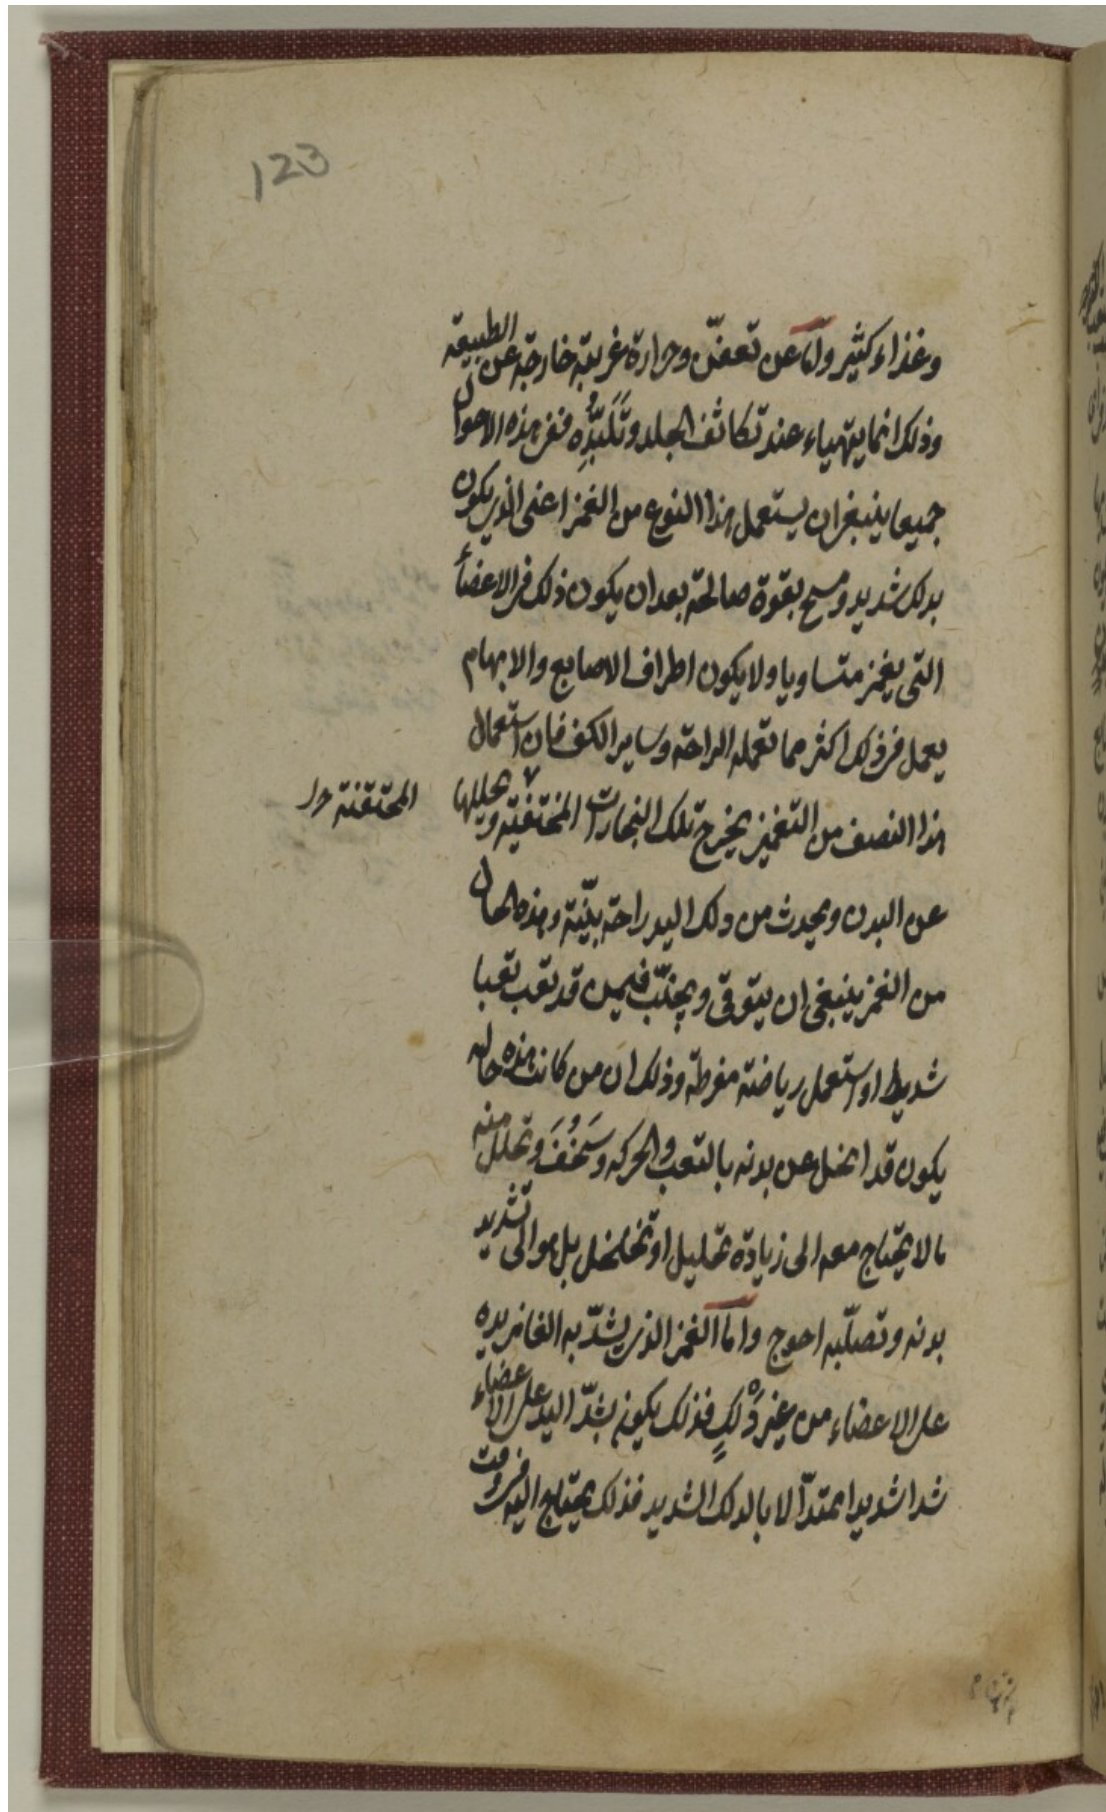 123
وغذاء كثير واما عن تعفن وحرارة غريبة خارجة عن الطبيعة
وذلك انما يتهياء عند تكاثف الجلد وتَلَبُّدِه ففى هذه الاحوال
جميعا ينبغى ان يستعمل هذا النوع من الغمز اعنى الذى يكون
بدلك شديد ومسح بقوة صالحة بعد ان يكون ذلك فى الاعضأ
التى يغمز متساويا ولا يكون اطراف الاصابع والابهام
يعمل فى ذلك اكثر مما تعمله الراحة وساير الكف فان استعمال
هذا النصف من التغميز يخرج تلك البخارات المختفية ويحللها
المحتقنة
عن البدن ويحدث من دلك اليد راحة بيّنة وهذه الحال
من الغمز ينبغى ان يتوقى ويجتنّب فيمن قد تعب تعبا
شديدا او استعمل رياضة مفرطة وذلك ان من كانت هذه حاله
يكون قد انحل عن بدنه بالتعب والحركه وسَخُفَ وتحلل منه
ما لا يحتاج معه الى زيادة تحليل او تخلخل بل هو الى تشديد
بدنه وتصلّبه احوج واما الغمز الذى يشدّ به الغامز يده
على الاعضاء من غير دَلكٍ فذلك يكون بشدّ اليد على الاعضاء
شدا شديدا معتدّا لا بالدلك الشديد فذلك يحتاج اليه فى وقت